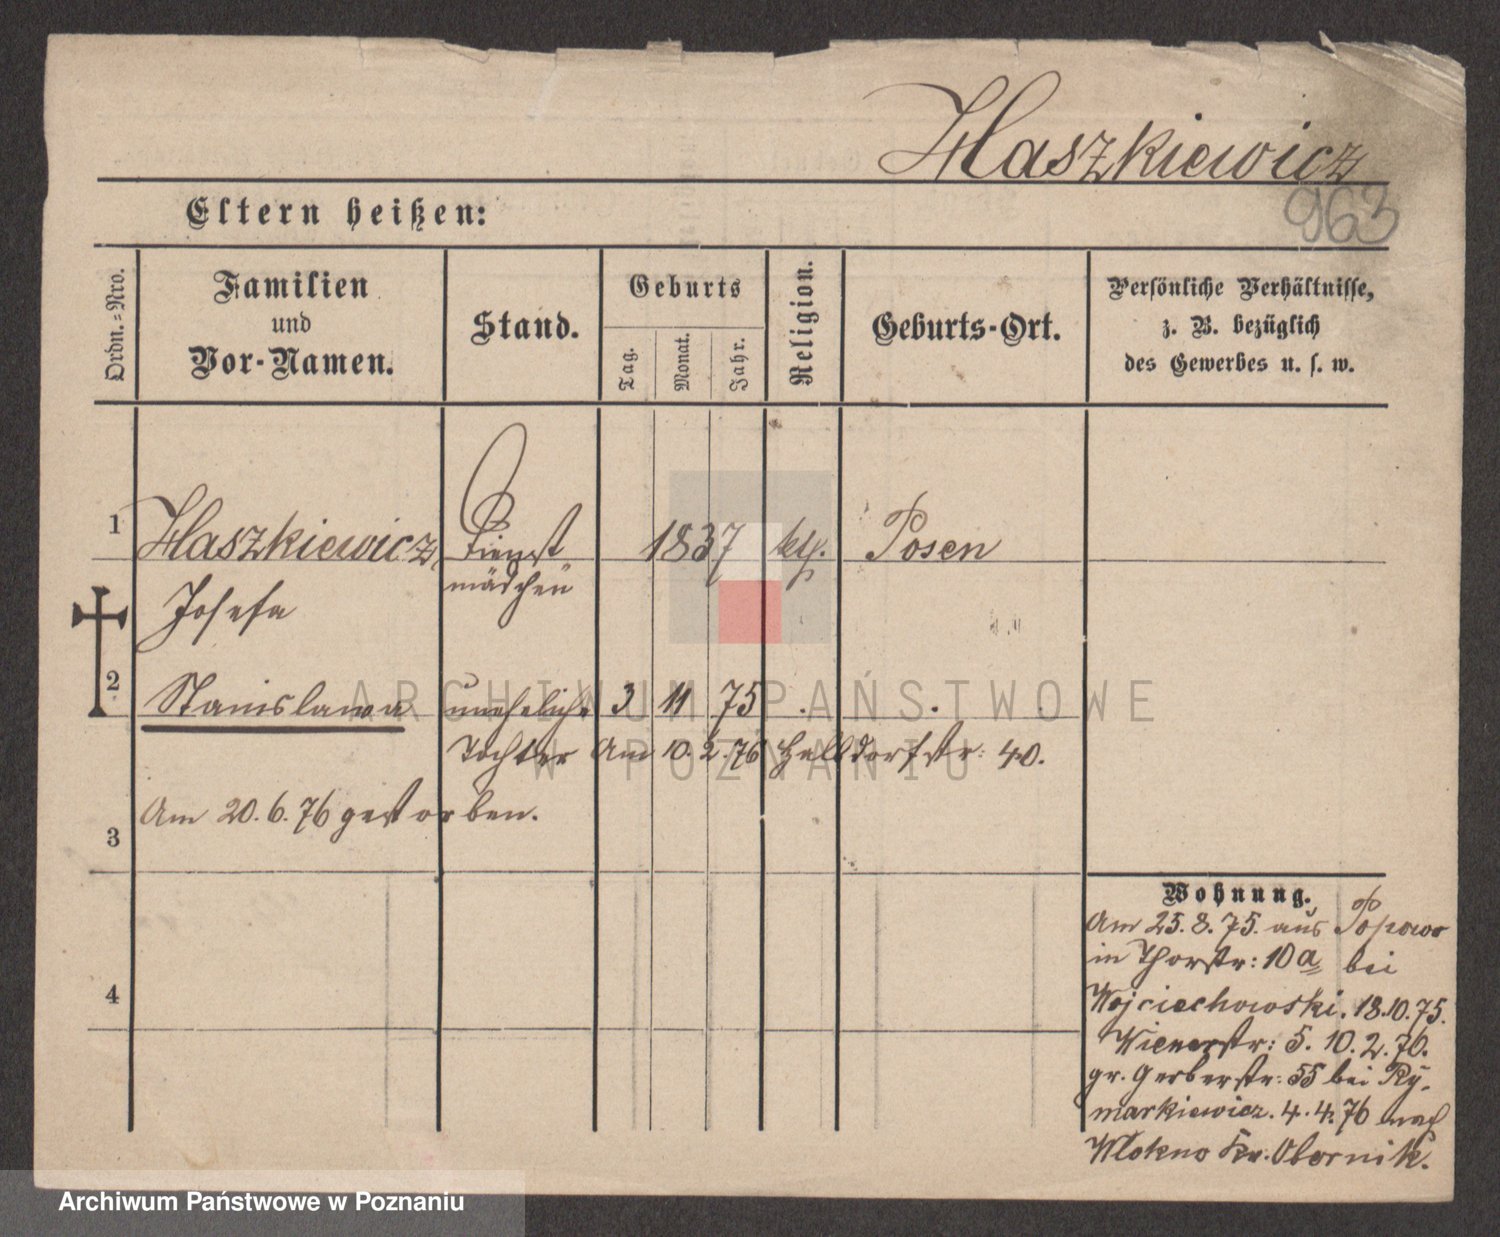 Haszkiewicz
963
Eltern heißen:
Ordn.-Nro.
Familien
und
Vor-Namen.
Stand.
Geburts
Tag.
Monat.
Jahr.
Religion.
Geburts-Ort.
Persönliche Verhältnisse,
z. B. bezüglich
des Gewerbes u. s. w.
1 Haszkiewicz Dienst 1837 kth. Posen
Josefa mädchen
2 Stanislawa uneheliche 3 11 75
Tochter Am 10. 2. 76 Halbdorfstr: 40.
Am 20. 6. 76 gestorben.
3
4
Wohnung.
Am 25. 8. 75. aus Popowo
in Thorstr: 10 a bei
Wojciechowski. 18.10.75.
Wienerstr: 5. 10. 2. 76.
gr. Gerberstr: 55 bei Ry-
markiewicz. 4. 4. 76 nach
Wlokno Kr. Obornik.
ARCHIWUM PAŃSTWOWE
W POZNANIU
Archiwum Państwowe w Poznaniu